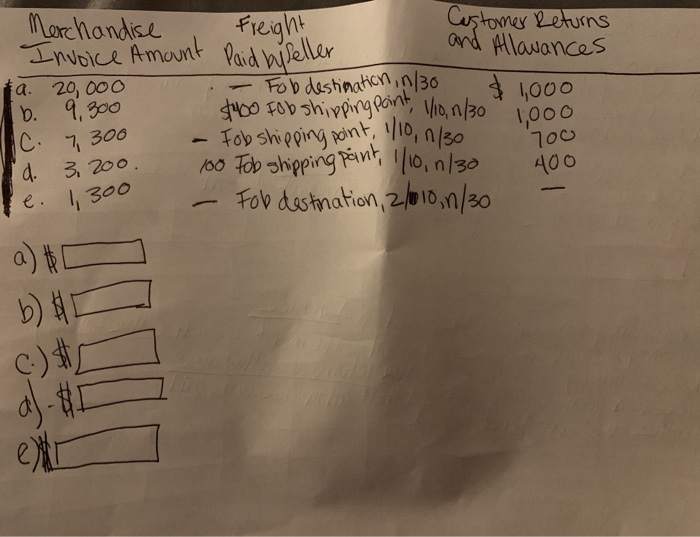 Merchandise Invoice Amount Freight Paid by Seller Customer Returns and Allawances
a. 20,000 — Fob destination, n/30 $ 1,000
b. 9,300 $400 Fob shipping point, 1/10, n/30 1,000
C. 7,300 — Fob shipping point, 1/10, n/30 700
d. 3,200. 100 Fob shipping point, 1/10, n/30 400
e. 1,300 — Fob destnation, 2/10, n/30 —
a) $
b) $
c.) $
d) - $
e) $